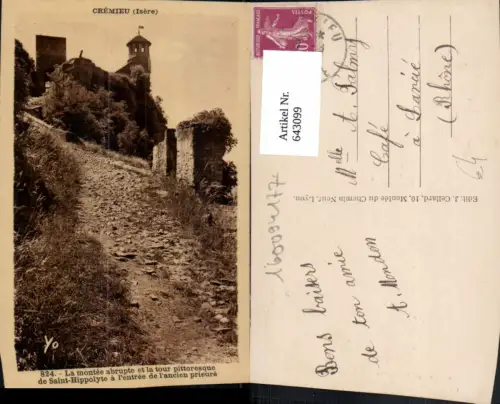 CRÉMIEU (Isère)
Yo
824. - La montée abrupte et la tour pittoresque
de Saint-Hippolyte à l'entrée de l'ancien prieuré
Artikel Nr.
643099
Melle A. Palmay
Café
à Savié
(Rhône)
Edit. J. Cellard, 10, Montée du Chemin Neuf, Lyon.
Bons baisers
de ton amie
A. Mondon